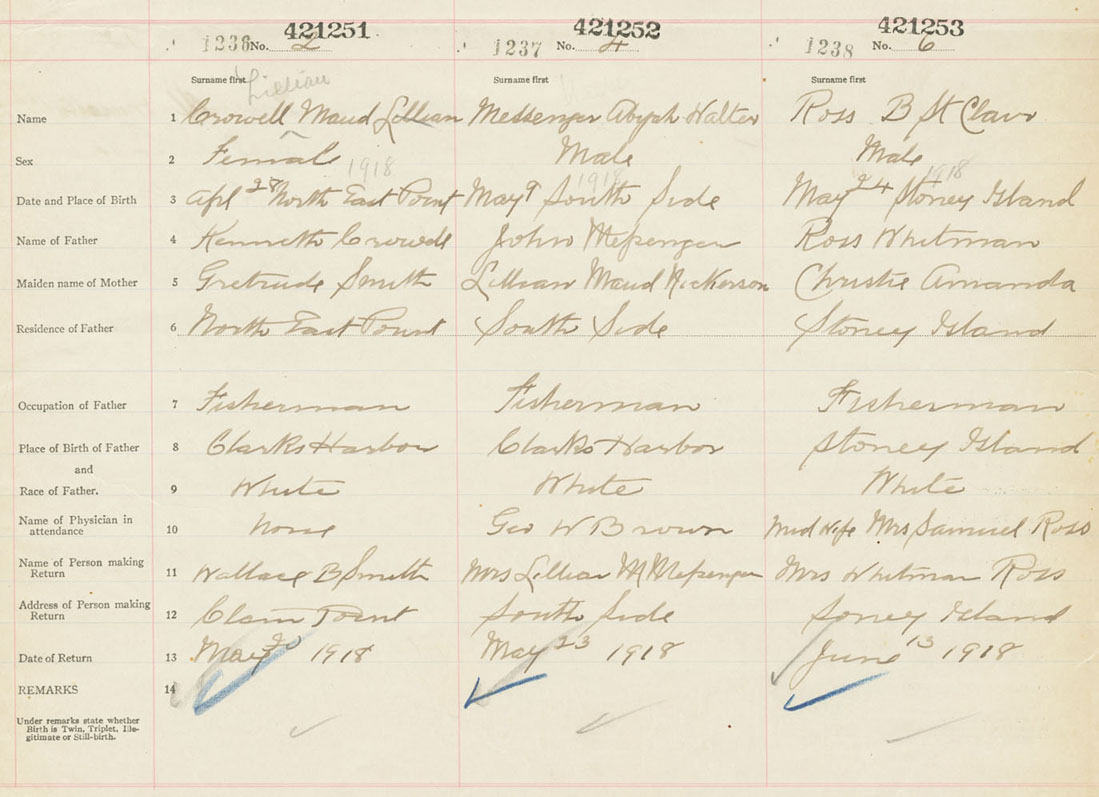 421251 421252 421253
1236 No. 2 1237 No. 4 1238 No. 6
Surname first Surname first Surname first
Lillian
Name 1 Crowell Maud Lillian Messenger Abijah Walter Ross B St Clair
Sex 2 Female Male Male
1918 1918 1918
Date and Place of Birth 3 Apl 28 North East Point May 9 South Side May 24 Stoney Island
Name of Father 4 Kenneth Crowell John Messenger Ross Whitman
Maiden name of Mother 5 Gretrude Smith Lillian Maud Nickerson Christie Amanda
Residence of Father 6 North East Point South Side Stoney Island
Occupation of Father 7 Fisherman Fisherman Fisherman
Place of Birth of Father 8 Clarks Harbor Clarks Harbor Stoney Island
and
Race of Father. 9 White White White
Name of Physician in
attendance 10 None Geo W Brown Mid Wife Mrs Samuel Ross
Name of Person making
Return 11 Wallace B Smith Mrs Lillian M Messenger Mrs Whitman Ross
Address of Person making
Return 12 Clam Point South Side Soney Island
Date of Return 13 May 1918 May 23 1918 June 13 1918
REMARKS 14
Under remarks state whether
Birth is Twin, Triplet, Ille-
gitimate or Still-birth.